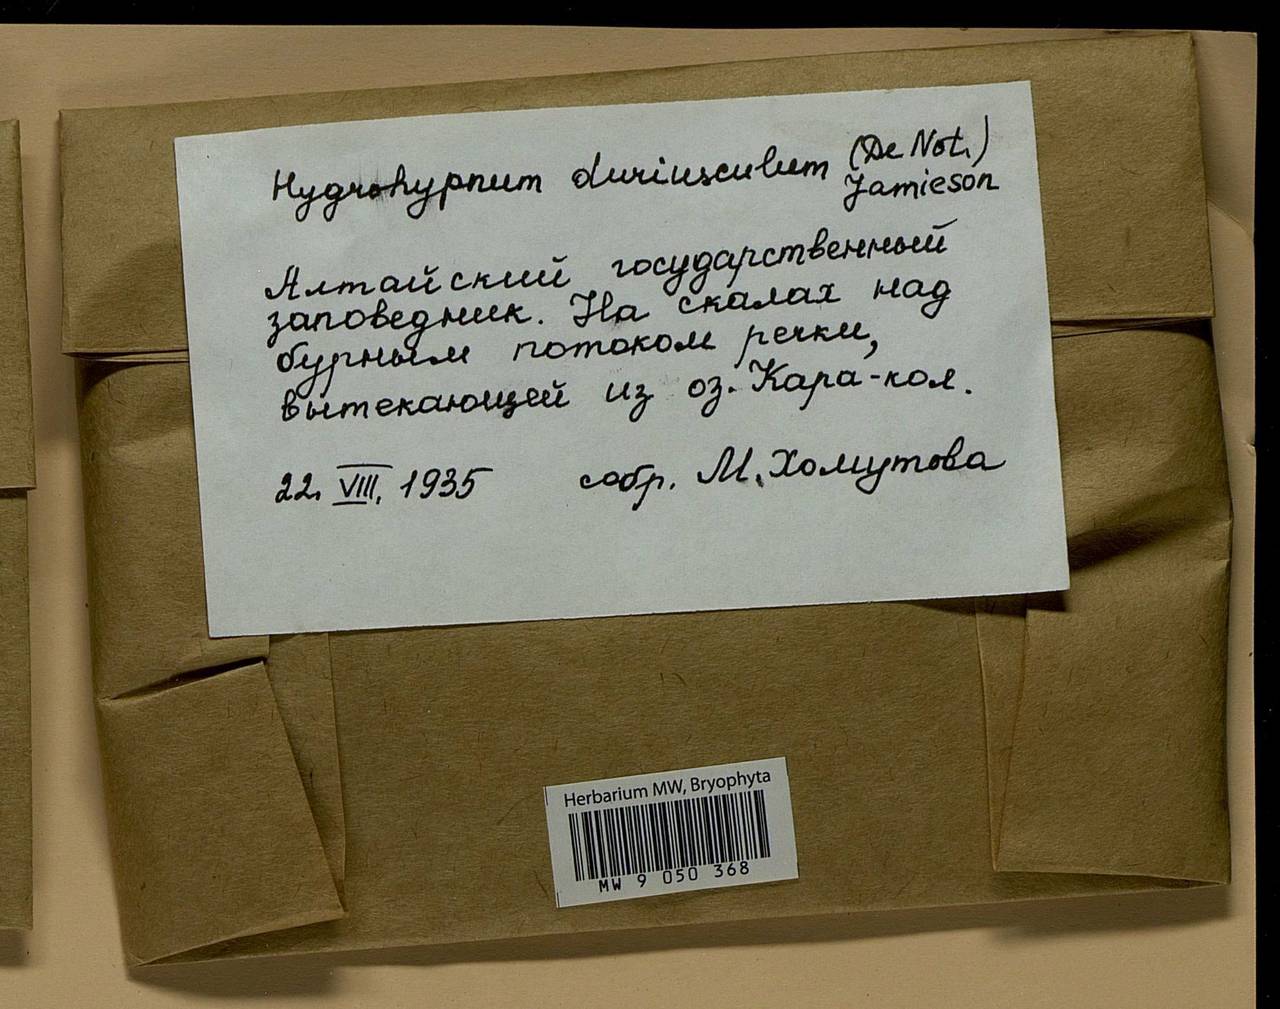 Hygrohypnum duriusculum (De Not.)
Jamieson
Алтайский государственный
заповедник. На скалах над
бурным потоком речки,
вытекающей из оз. Кара-кол.
22. VIII. 1935 собр. М. Хомутова
Herbarium MW, Bryophyta
MW 9 050 368